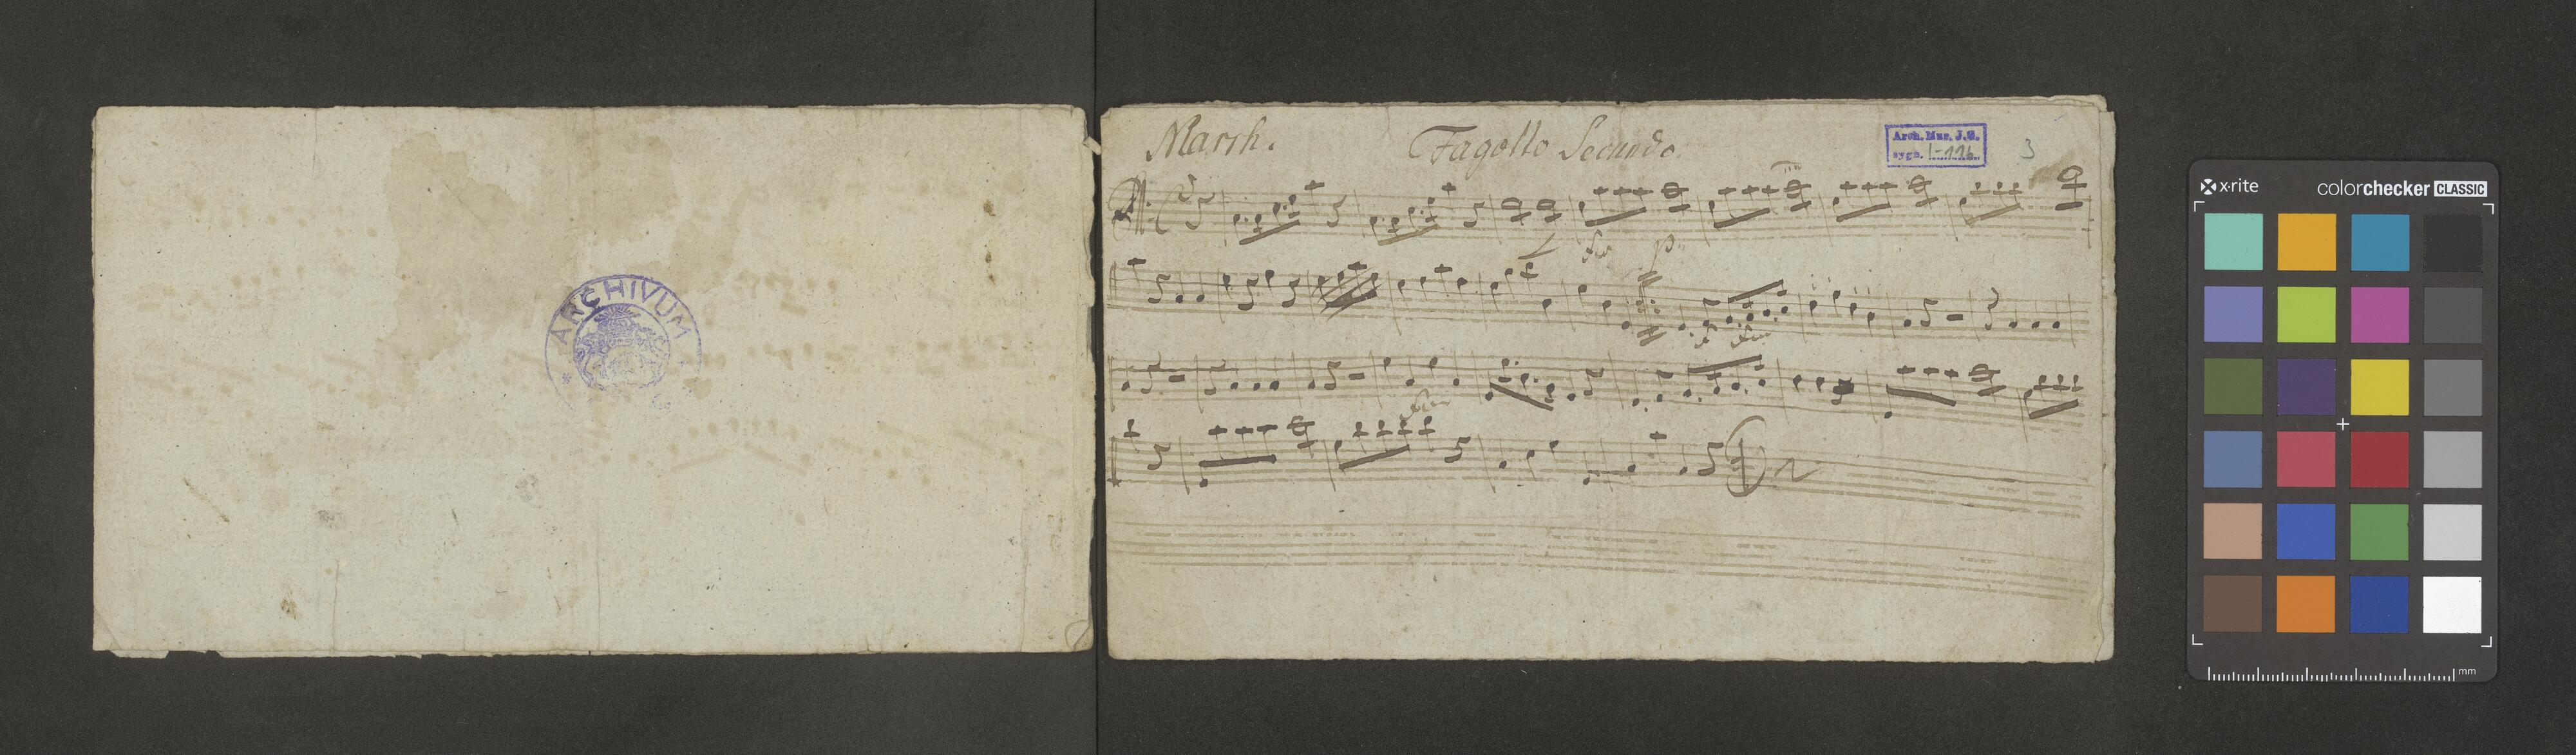 ARCHIVUM
Marsh. Fagotto Secundo.
Arch. Mus. J.G.
sygn. I-116
3
p
x·rite colorchecker CLASSIC
mm